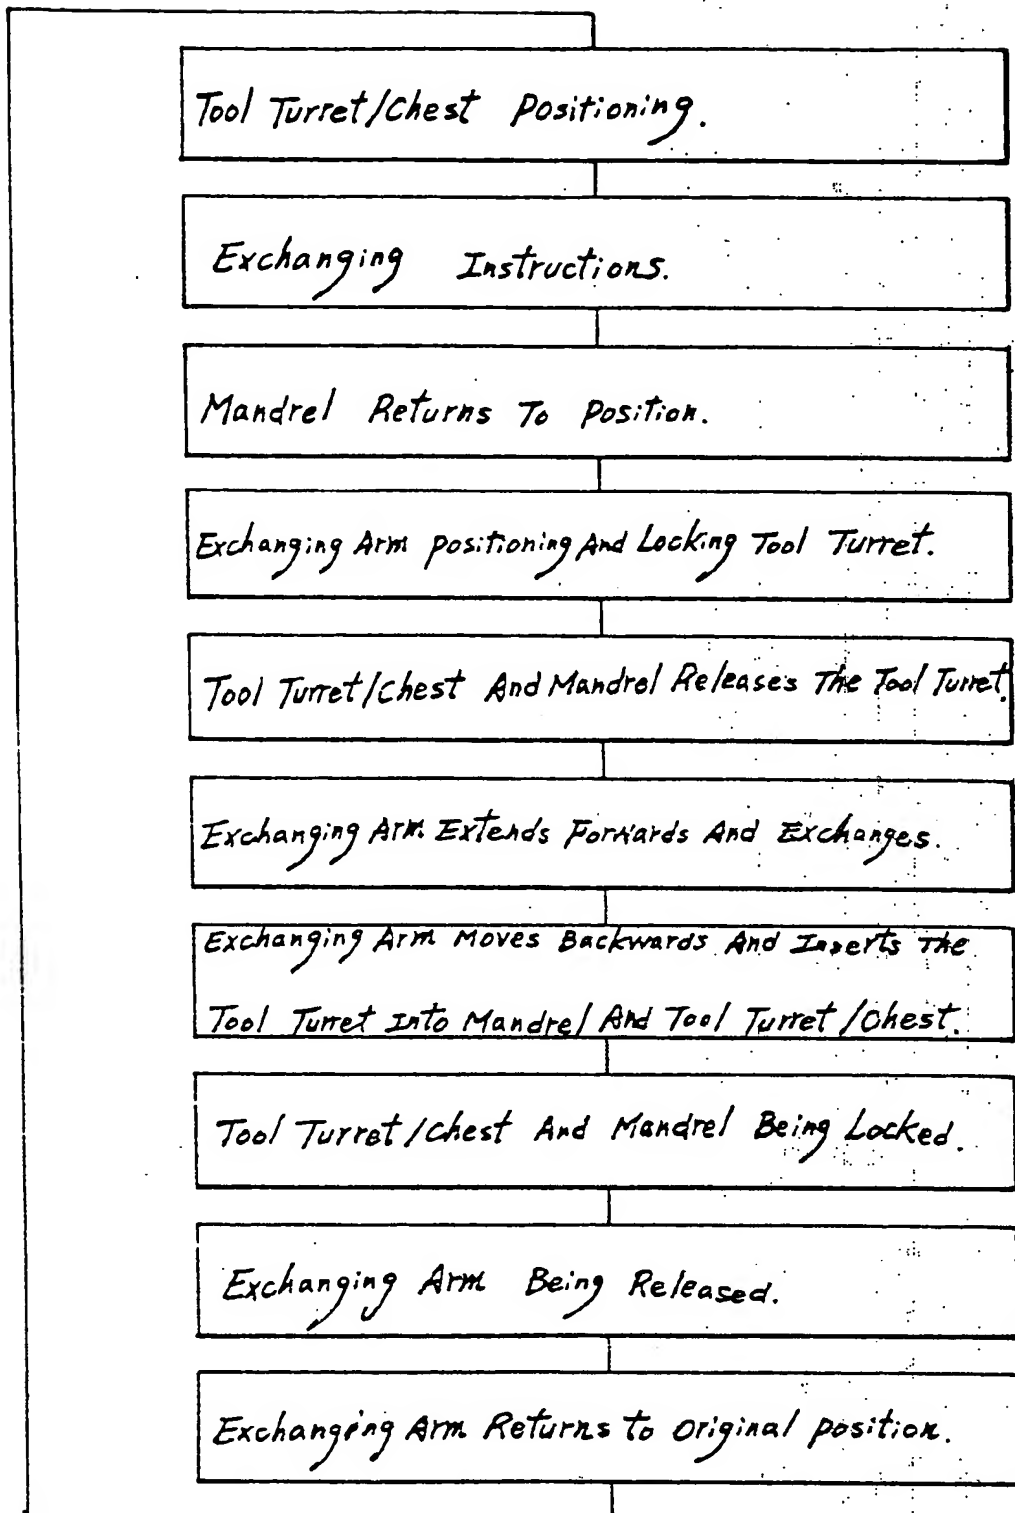 Tool Turret/Chest Positioning.
Exchanging Instructions.
Mandrel Returns To Position.
Exchanging Arm Positioning And Locking Tool Turret.
Tool Turret/Chest And Mandrel Releases The Tool Turret.
Exchanging Arm Extends Forwards And Exchanges.
Exchanging Arm Moves Backwards And Inserts The
Tool Turret Into Mandrel And Tool Turret/Chest.
Tool Turret/Chest And Mandrel Being Locked.
Exchanging Arm Being Released.
Exchanging Arm Returns To Original Position.